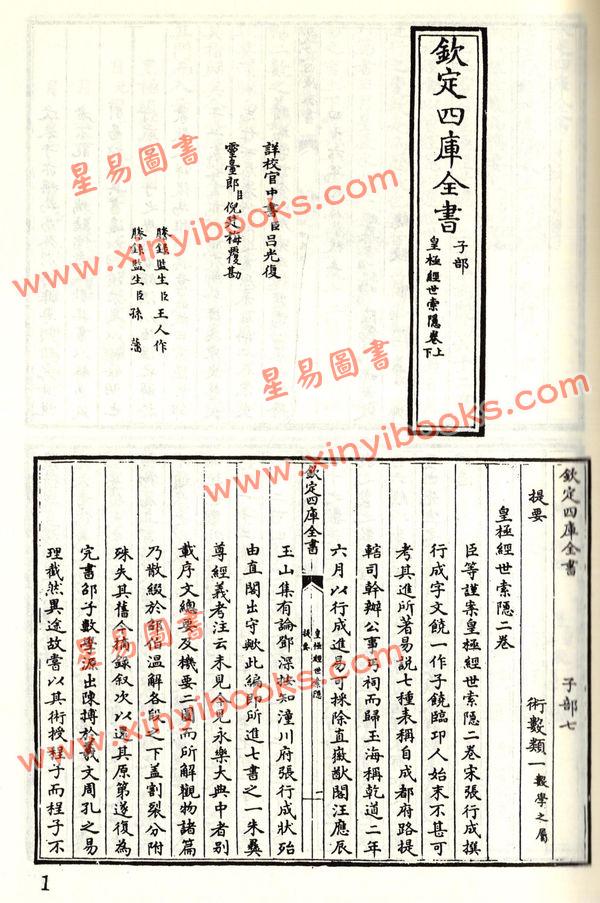 欽定四庫全書
子部
皇極經世索隱卷上
下
詳校官中書臣呂光復
靈臺郎臣倪廷梅覆勘
謄錄監生臣王人作
謄錄監生臣孫藩
星易圖書
www.xinyibooks.com
星易圖書
www.xinyibooks.com
欽定四庫全書
子部七
提要
術數類一數學之屬
皇極經世索隱二卷
臣等謹案皇極經世索隱二卷宋張行成撰
行成字文饒一作子饒臨邛人始末不甚可
考其進所著易說七種表稱自成都府路提
轄司幹辦公事丐祠而歸玉海稱乾道二年
六月以行成進易可採除直徽猷閣汪應辰
欽定四庫全書
皇極經世索隱
提要
一
玉山集有論鄧深法知潼川府張行成狀殆
由直閣出守歟此編即所進七書之一朱彝
尊經義考注云未見今見永樂大典中者別
載序文總要及機要二圖而所解觀物諸篇
乃散綴於邵伯溫解各段之下蓋割裂分附
殊失其舊今摘錄叙次以還其原第遂復為
完書邵子數學源出陳摶於羲文周孔之易
理截然異途故嘗以其術授程子而程子不
星易圖書
www.xinyibooks.com
www.xinyibooks.com
1